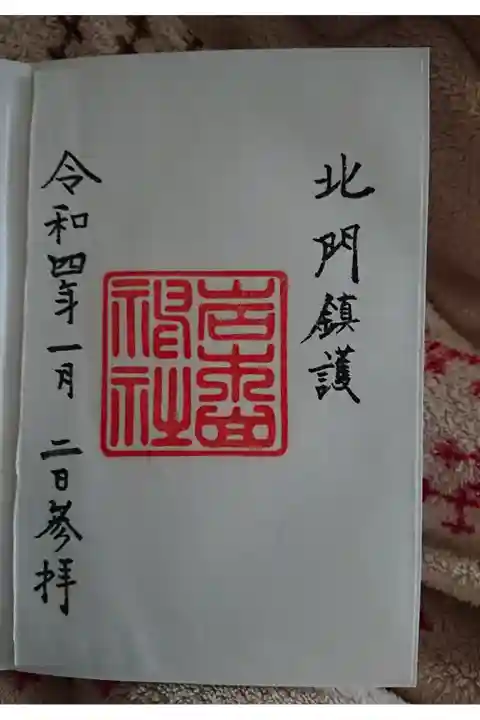 北門鎮護
岩木山
神社
令和四年一月二日参拝